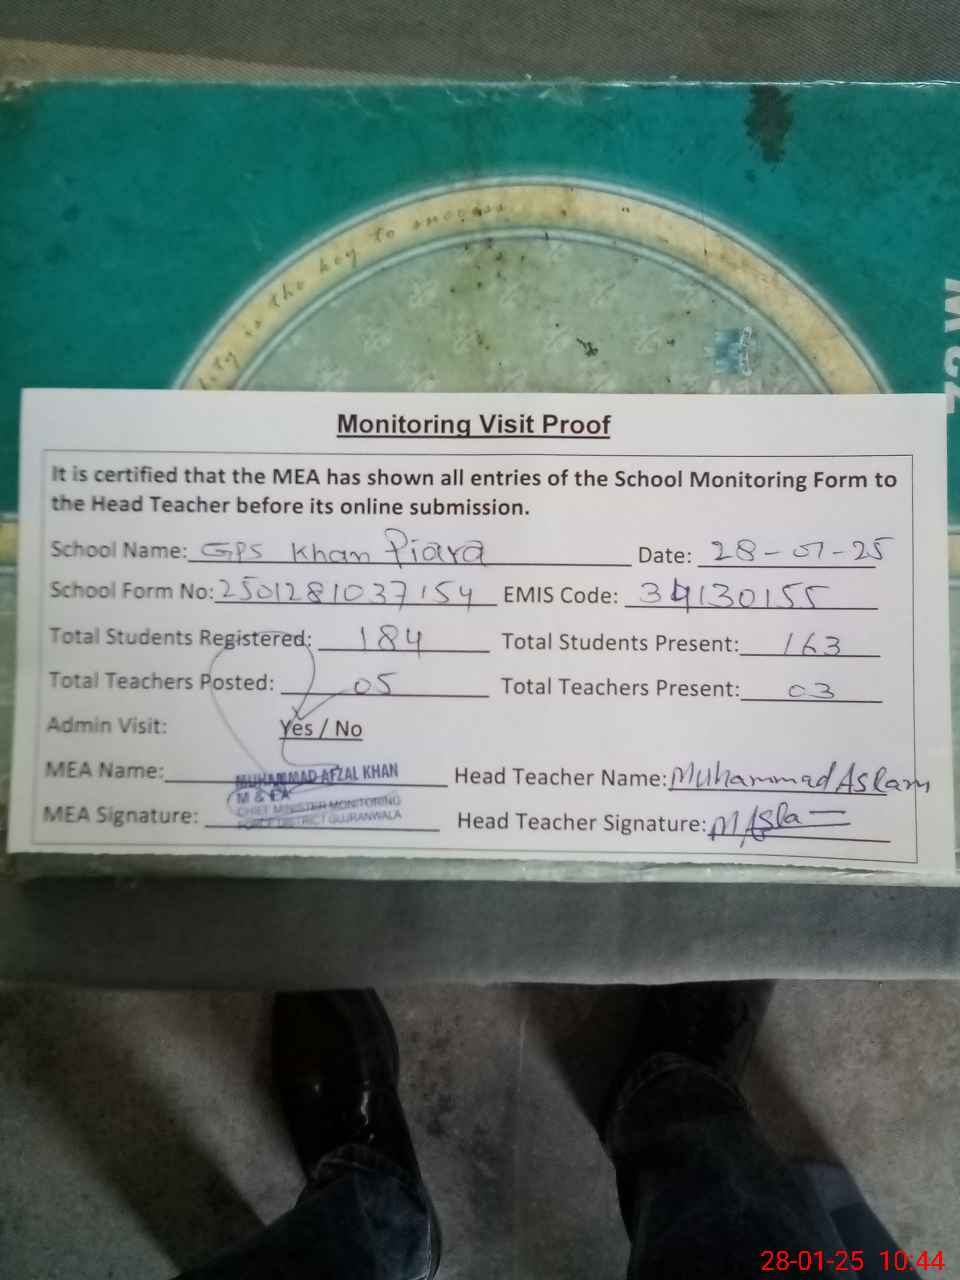 key to success
Monitoring Visit Proof
It is certified that the MEA has shown all entries of the School Monitoring Form to
the Head Teacher before its online submission.
School Name: GPS Khan Piara Date: 28-01-25
School Form No: 2501281037154 EMIS Code: 34130155
Total Students Registered: 184 Total Students Present: 163
Total Teachers Posted: 05 Total Teachers Present: 03
Admin Visit: Yes / No
MEA Name: MUHAMMAD AFZAL KHAN Head Teacher Name: Muhammad Aslam
M & EA
CHIEF MINISTER MONITORING
MEA Signature: FORCE DISTRICT GUJRANWALA Head Teacher Signature: M Asla
28-01-25 10:44